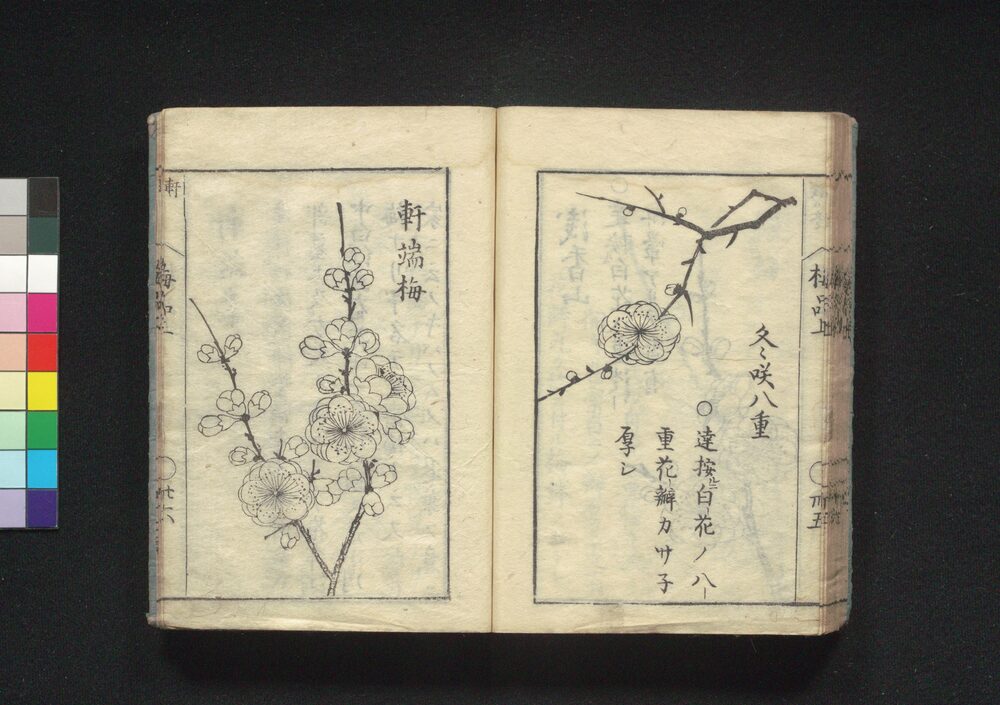 冬咲八重
〇達按ニ白花ノ八
重花瓣カサ子
厚シ
梅品上
卅五
軒端梅
軒
梅品上
卅六